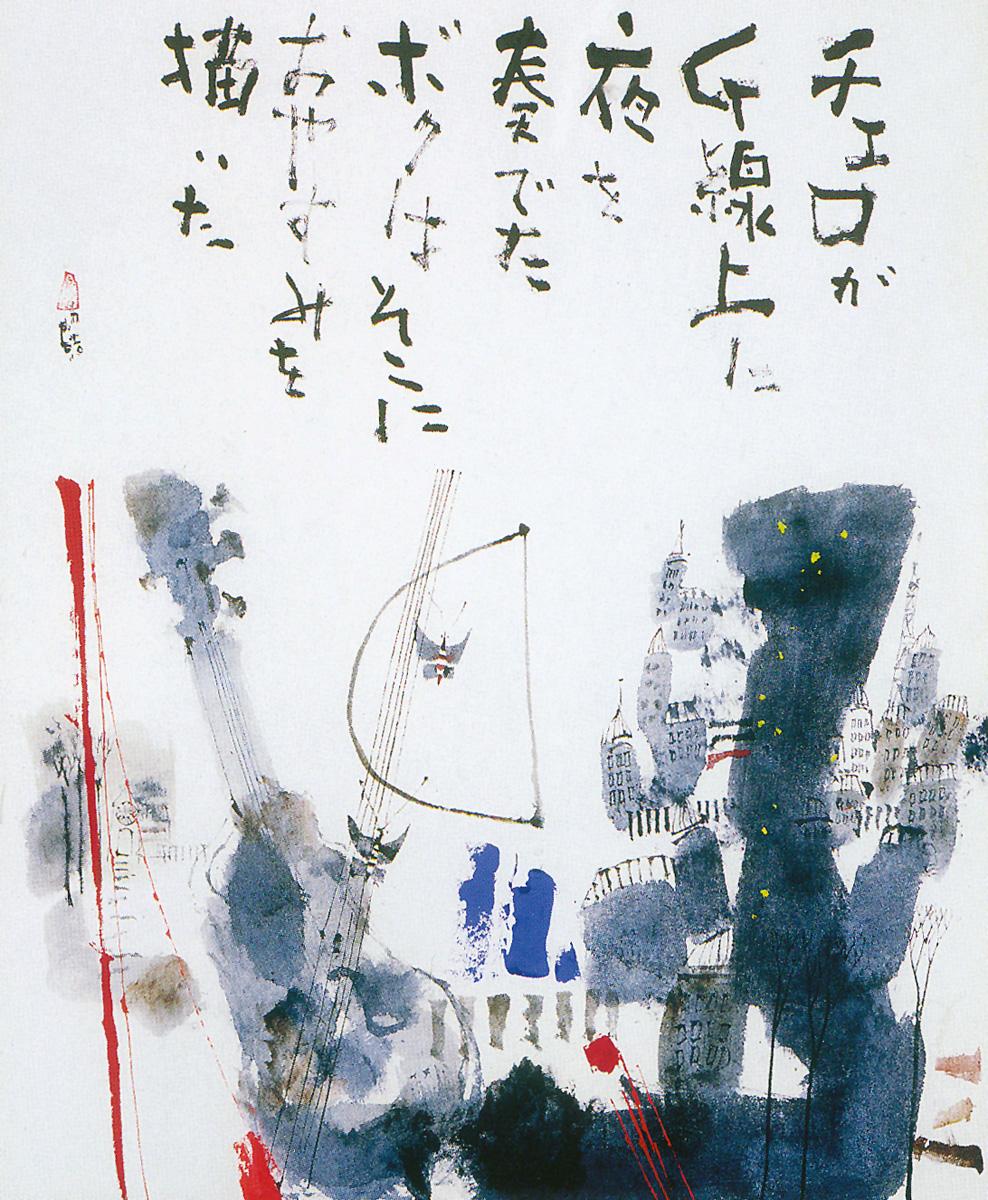 チェロが
G線上に
夜を
奏でた
ボクはそこに
おやすみを
描いた